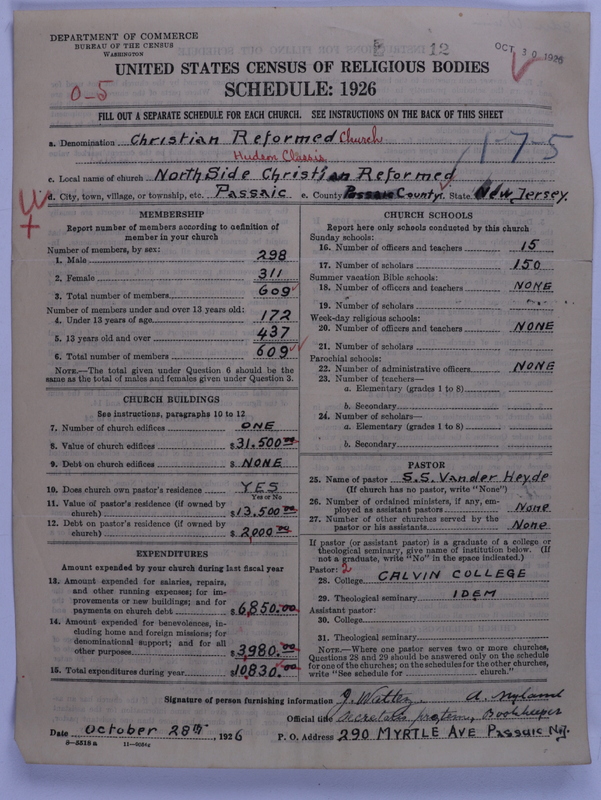 DEPARTMENT OF COMMERCE
BUREAU OF THE CENSUS
WASHINGTON
12
OCT 30 1926
UNITED STATES CENSUS OF RELIGIOUS BODIES
SCHEDULE: 1926
0-5
FILL OUT A SEPARATE SCHEDULE FOR EACH CHURCH. SEE INSTRUCTIONS ON THE BACK OF THIS SHEET
a. Denomination Christian Reformed Church
1-7-5
Hudson Classis
c. Local name of church North Side Christian Reformed
d. City, town, village, or township, etc. Passaic e. County Passaic County f. State New Jersey.
MEMBERSHIP
Report number of members according to definition of member in your church
Number of members, by sex:
1. Male 298
2. Female 311
3. Total number of members 609
Number of members under and over 13 years old:
4. Under 13 years of age 172
5. 13 years old and over 437
6. Total number of members 609
NOTE.—The total given under Question 6 should be the same as the total of males and females given under Question 3.
CHURCH BUILDINGS
See instructions, paragraphs 10 to 12
7. Number of church edifices ONE
8. Value of church edifices $31,500 00
9. Debt on church edifices $ NONE
10. Does church own pastor's residence YES
Yes or No
11. Value of pastor's residence (if owned by church) $13,500 00
12. Debt on pastor's residence (if owned by church) $ 2,000 00
EXPENDITURES
Amount expended by your church during last fiscal year
13. Amount expended for salaries, repairs, and other running expenses; for improvements or new buildings; and for payments on church debt $6,850.00
14. Amount expended for benevolences, including home and foreign missions; for denominational support; and for all other purposes $3,980.00
15. Total expenditures during year $10,830.00
CHURCH SCHOOLS
Report here only schools conducted by this church
Sunday schools:
16. Number of officers and teachers 15
17. Number of scholars 150
Summer vacation Bible schools:
18. Number of officers and teachers NONE
19. Number of scholars
Week-day religious schools:
20. Number of officers and teachers NONE
21. Number of scholars
Parochial schools:
22. Number of administrative officers NONE
23. Number of teachers—
a. Elementary (grades 1 to 8)
b. Secondary
24. Number of scholars—
a. Elementary (grades 1 to 8)
b. Secondary
PASTOR
25. Name of pastor S.S. Vander Heyde
(If church has no pastor, write "None")
26. Number of ordained ministers, if any, employed as assistant pastors None
27. Number of other churches served by the pastor or his assistants None
If pastor (or assistant pastor) is a graduate of a college or theological seminary, give name of institution below. (If not a graduate, write "No" in the space indicated.)
Pastor: 2
28. College CALVIN COLLEGE
29. Theological seminary IDEM
Assistant pastor:
30. College
31. Theological seminary
NOTE.—Where one pastor serves two or more churches, Questions 28 and 29 should be answered only on the schedule for one of the churches; on the schedules for the other churches, write "See schedule for church."
Signature of person furnishing information A. Nyland
Official title Bookkeeper
Date October 28th, 1926 P. O. Address 290 MYRTLE AVE Passaic N.J.
8-5518a